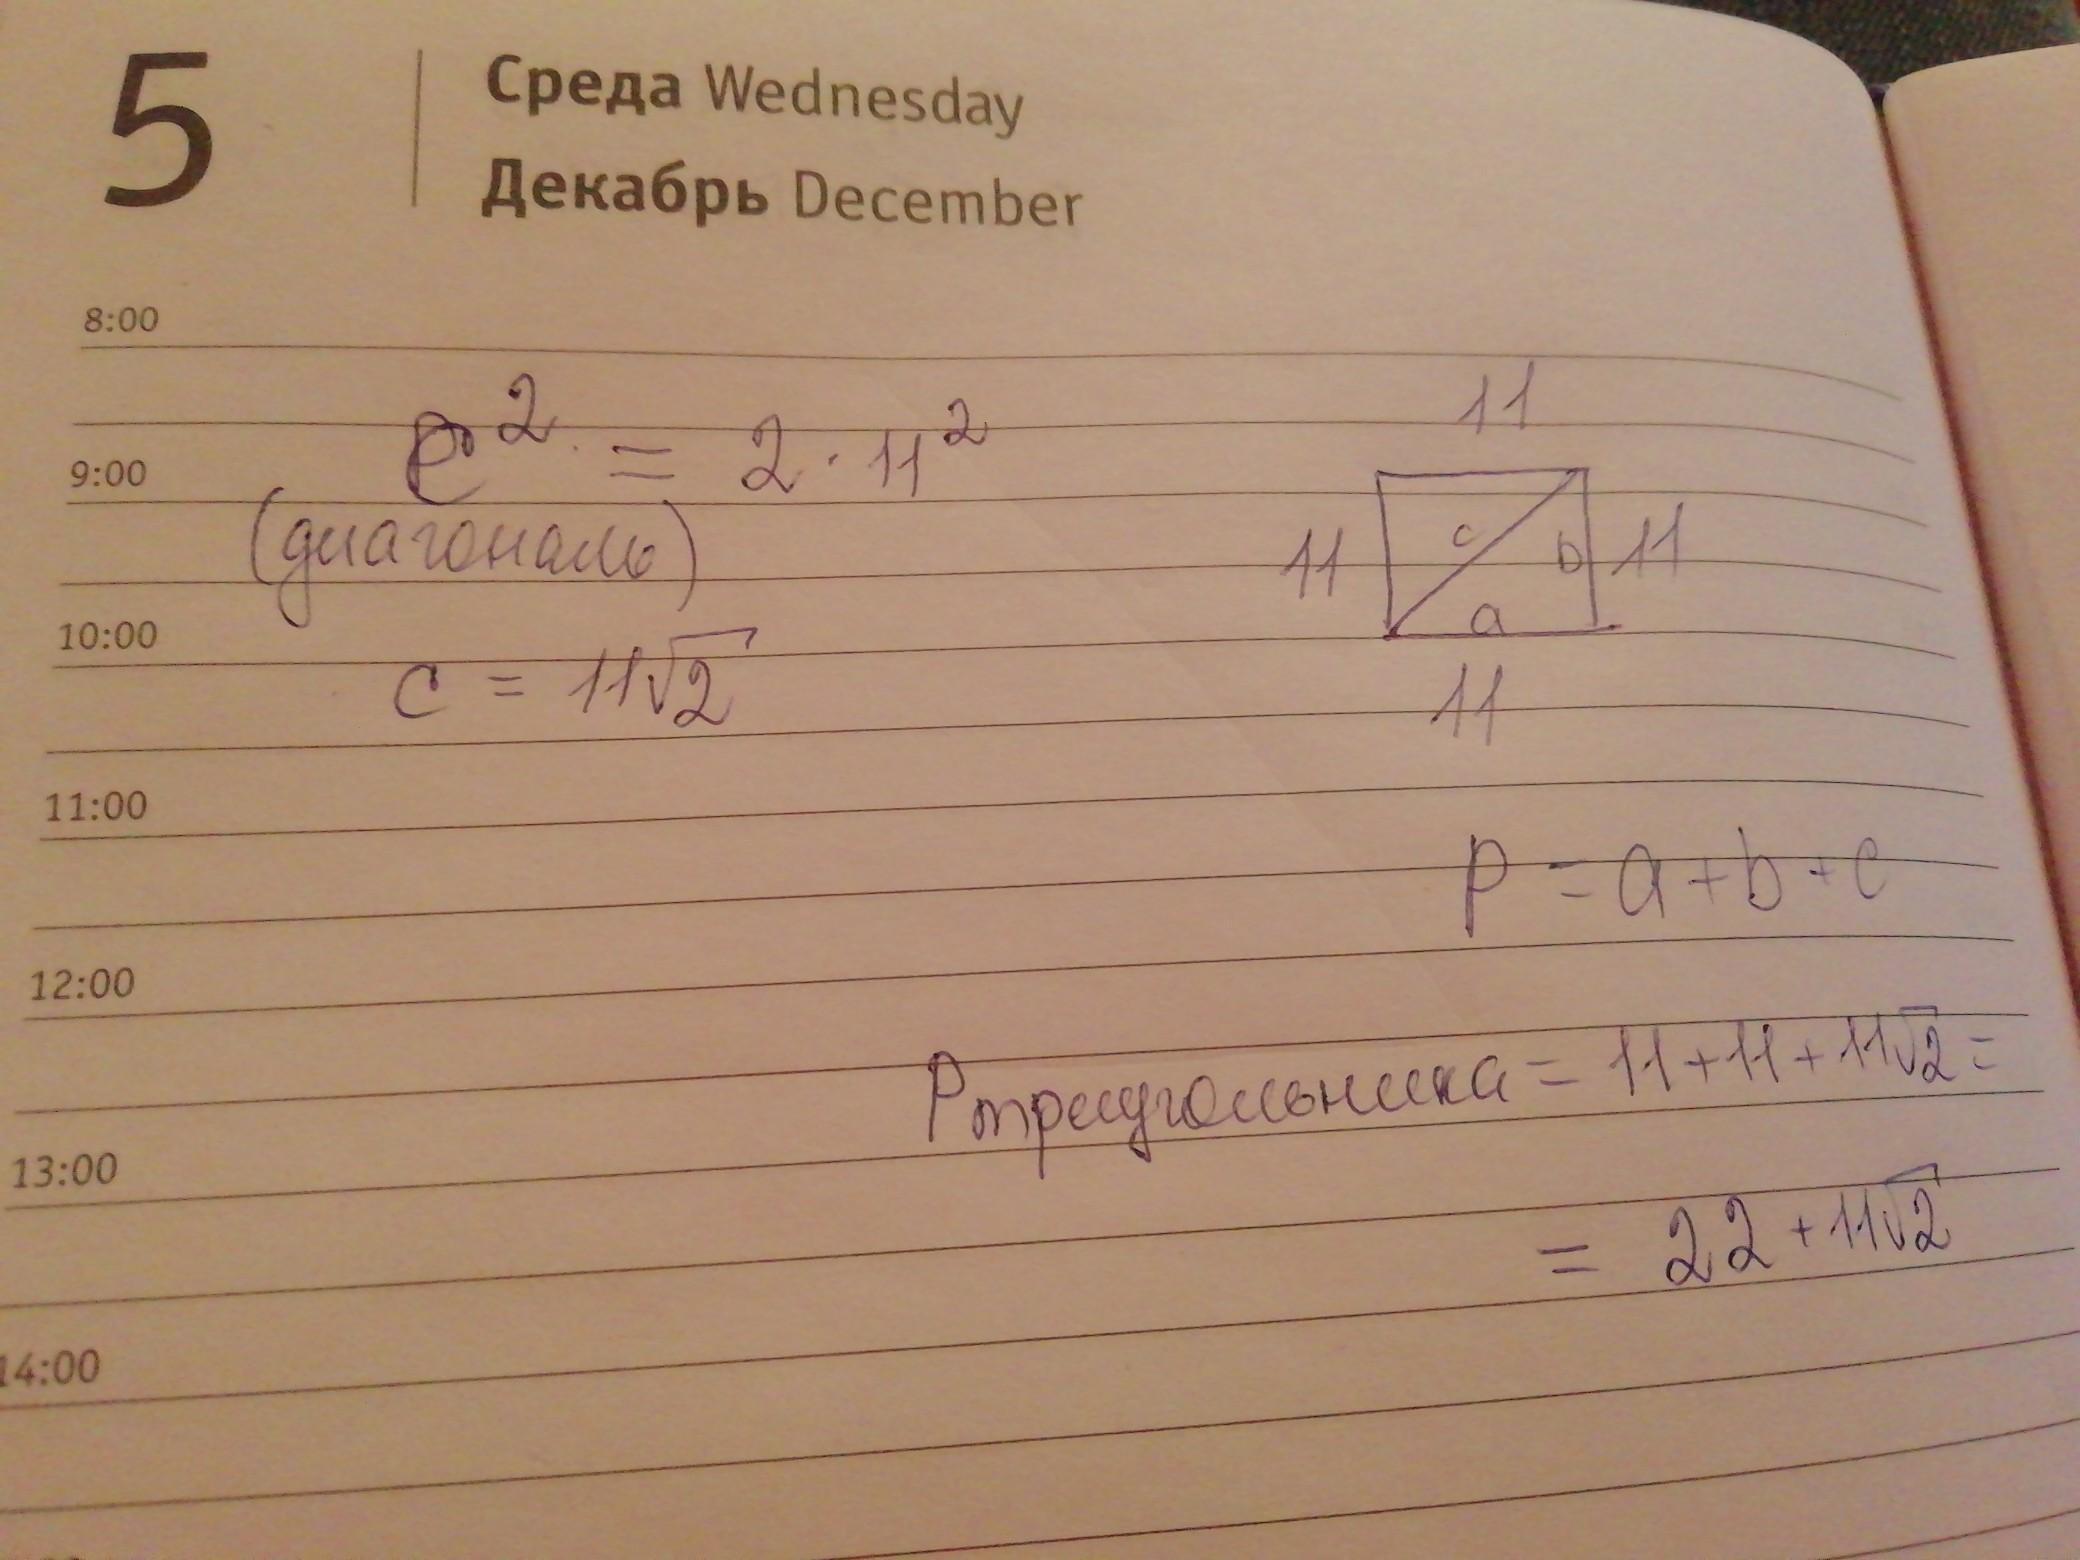 5
Среда Wednesday
Декабрь December
8:00
9:00
c² = 2 · 11²
(диагональ)
10:00
c = 11√2
11
11
c
b
11
a
11
11:00
P = a + b + c
12:00
Pтреугольника = 11 + 11 + 11√2 =
13:00
= 22 + 11√2
14:00